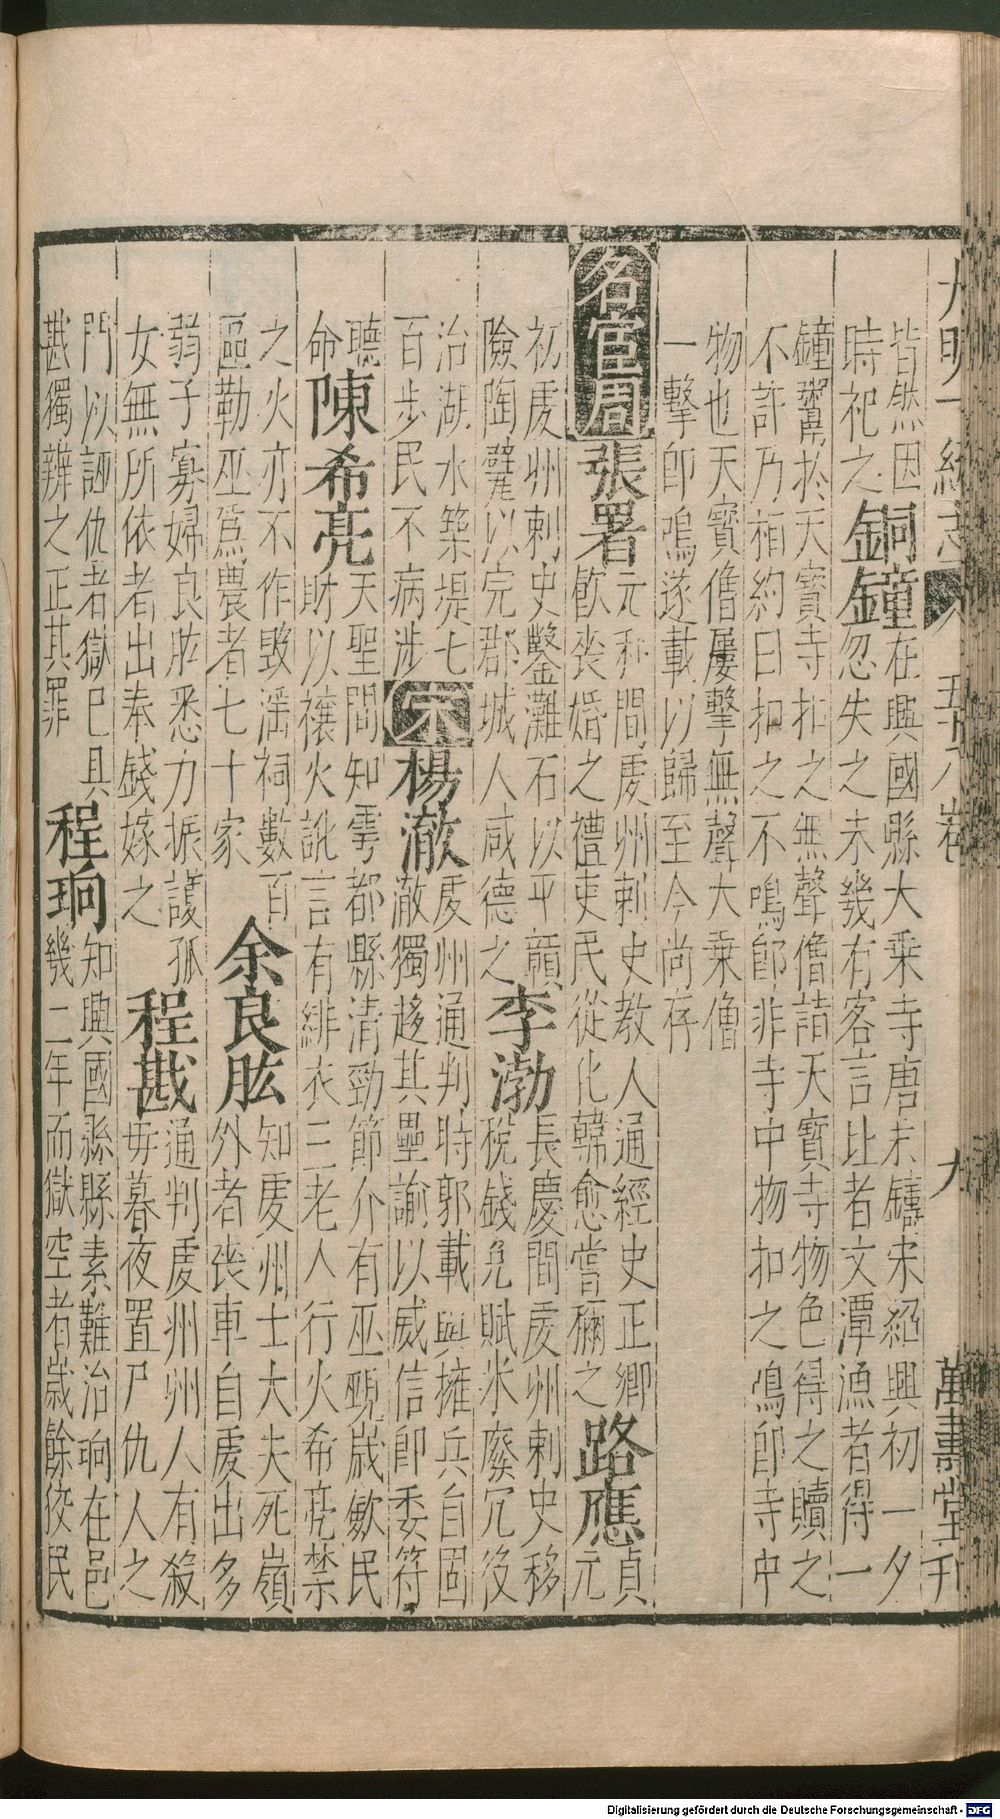 大明一統志 五十八卷 九 萬壽堂刊
皆然因
時祀之
銅鐘
在興國縣大乗寺唐末鑄宋紹興初一夕
忽失之未幾有客言比者文潭漁者得一
鐘鬻於天寶寺扣之無聲僧詰天寶寺物色得之贖之
不許乃相約曰扣之不鳴卽非寺中物扣之鳴卽寺中
物也天寶僧屢擊無聲大乗僧
一擊卽鳴遂載以歸至今尚存
名宦周 張署
元和間虔州刺史教人通經史正卿
飮喪婚之禮吏民從化韓愈嘗稱之
路應
貞
元
初虔州刺史鑿灘石以平贛
險陶甓以完郡城人咸德之
李渤
長慶間虔州刺史移
稅錢免賦米廢冗役
治湖水築堤七
百步民不病涉
宋 楊澈
虔州通判時郭載與擁兵自固
澈獨趍其壘諭以威信卽委符
聽
命
陳希亮
天聖間知雩都縣清勁節介有巫覡歲歛民
財以禳火訛言有緋衣三老人行火希亮禁
之火亦不作毀淫祠數百
區勒巫爲農者七十家
余良肱
知虔州士大夫死嶺
外者喪車自虔出多
弱子寡婦良肱悉力振護孤
女無所依者出奉錢嫁之
程戡
通判虔州州人有殺
毋暮夜置尸仇人之
門以誣仇者獄已具
戡獨辨之正其罪
程珦
知興國縣縣素難治珦在邑
幾二年而獄空者歲餘佼民
Digitalisierung gefördert durch die Deutsche Forschungsgemeinschaft - DFG